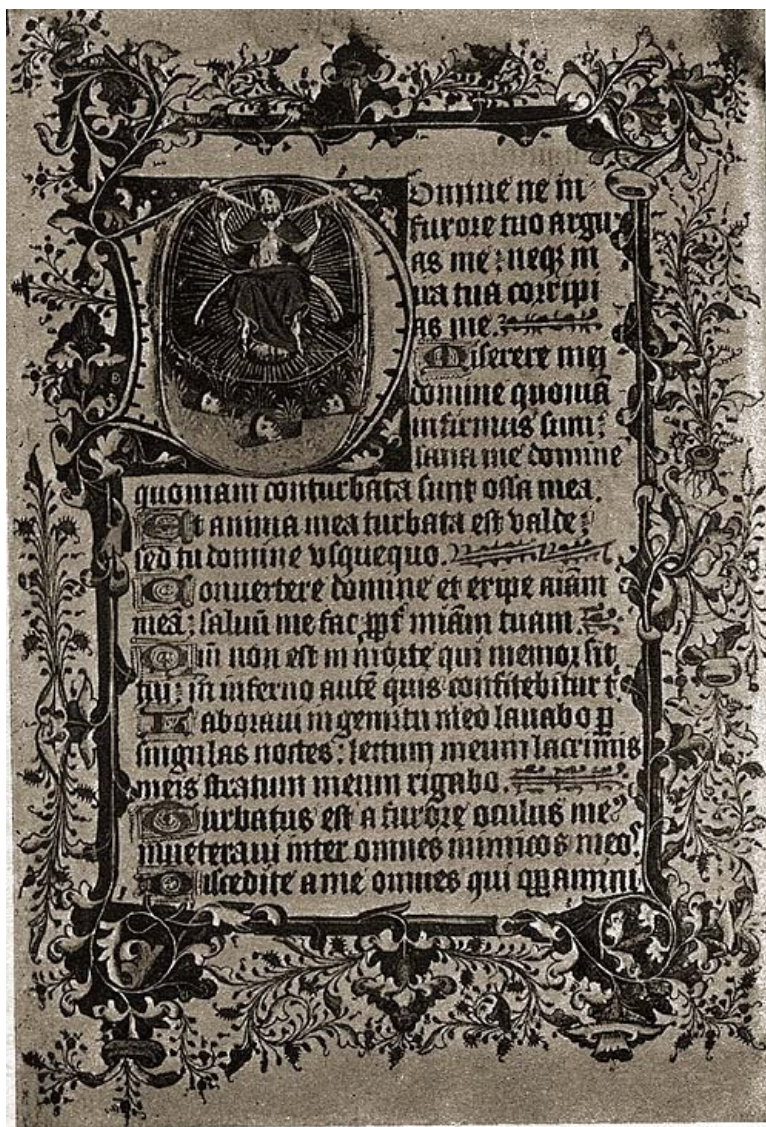 Domine ne in
furore tuo argu
as me: neqꝫ in
ira tua corripi
as me.
Miserere mei
domine quoniā
infirmus sum:
sana me domine
quoniam conturbata sunt ossa mea.
Et anima mea turbata est valde:
sed tu domine vsquequo.
Convertere domine et eripe aīam
meā: saluū me fac ꝓpt̄ miām tuam
Qm̄ non est in morte qui memor sit
tui: in inferno autē quis confitebitur t
Laboraui in gemitu meo lauabo ꝑ
singulas noctes: lectum meum lacrimis
meis stratum meum rigabo.
Turbatus est a furore oculus meꝰ
inueteraui inter omnes inimicos meoˢ
Discedite a me omnes qui